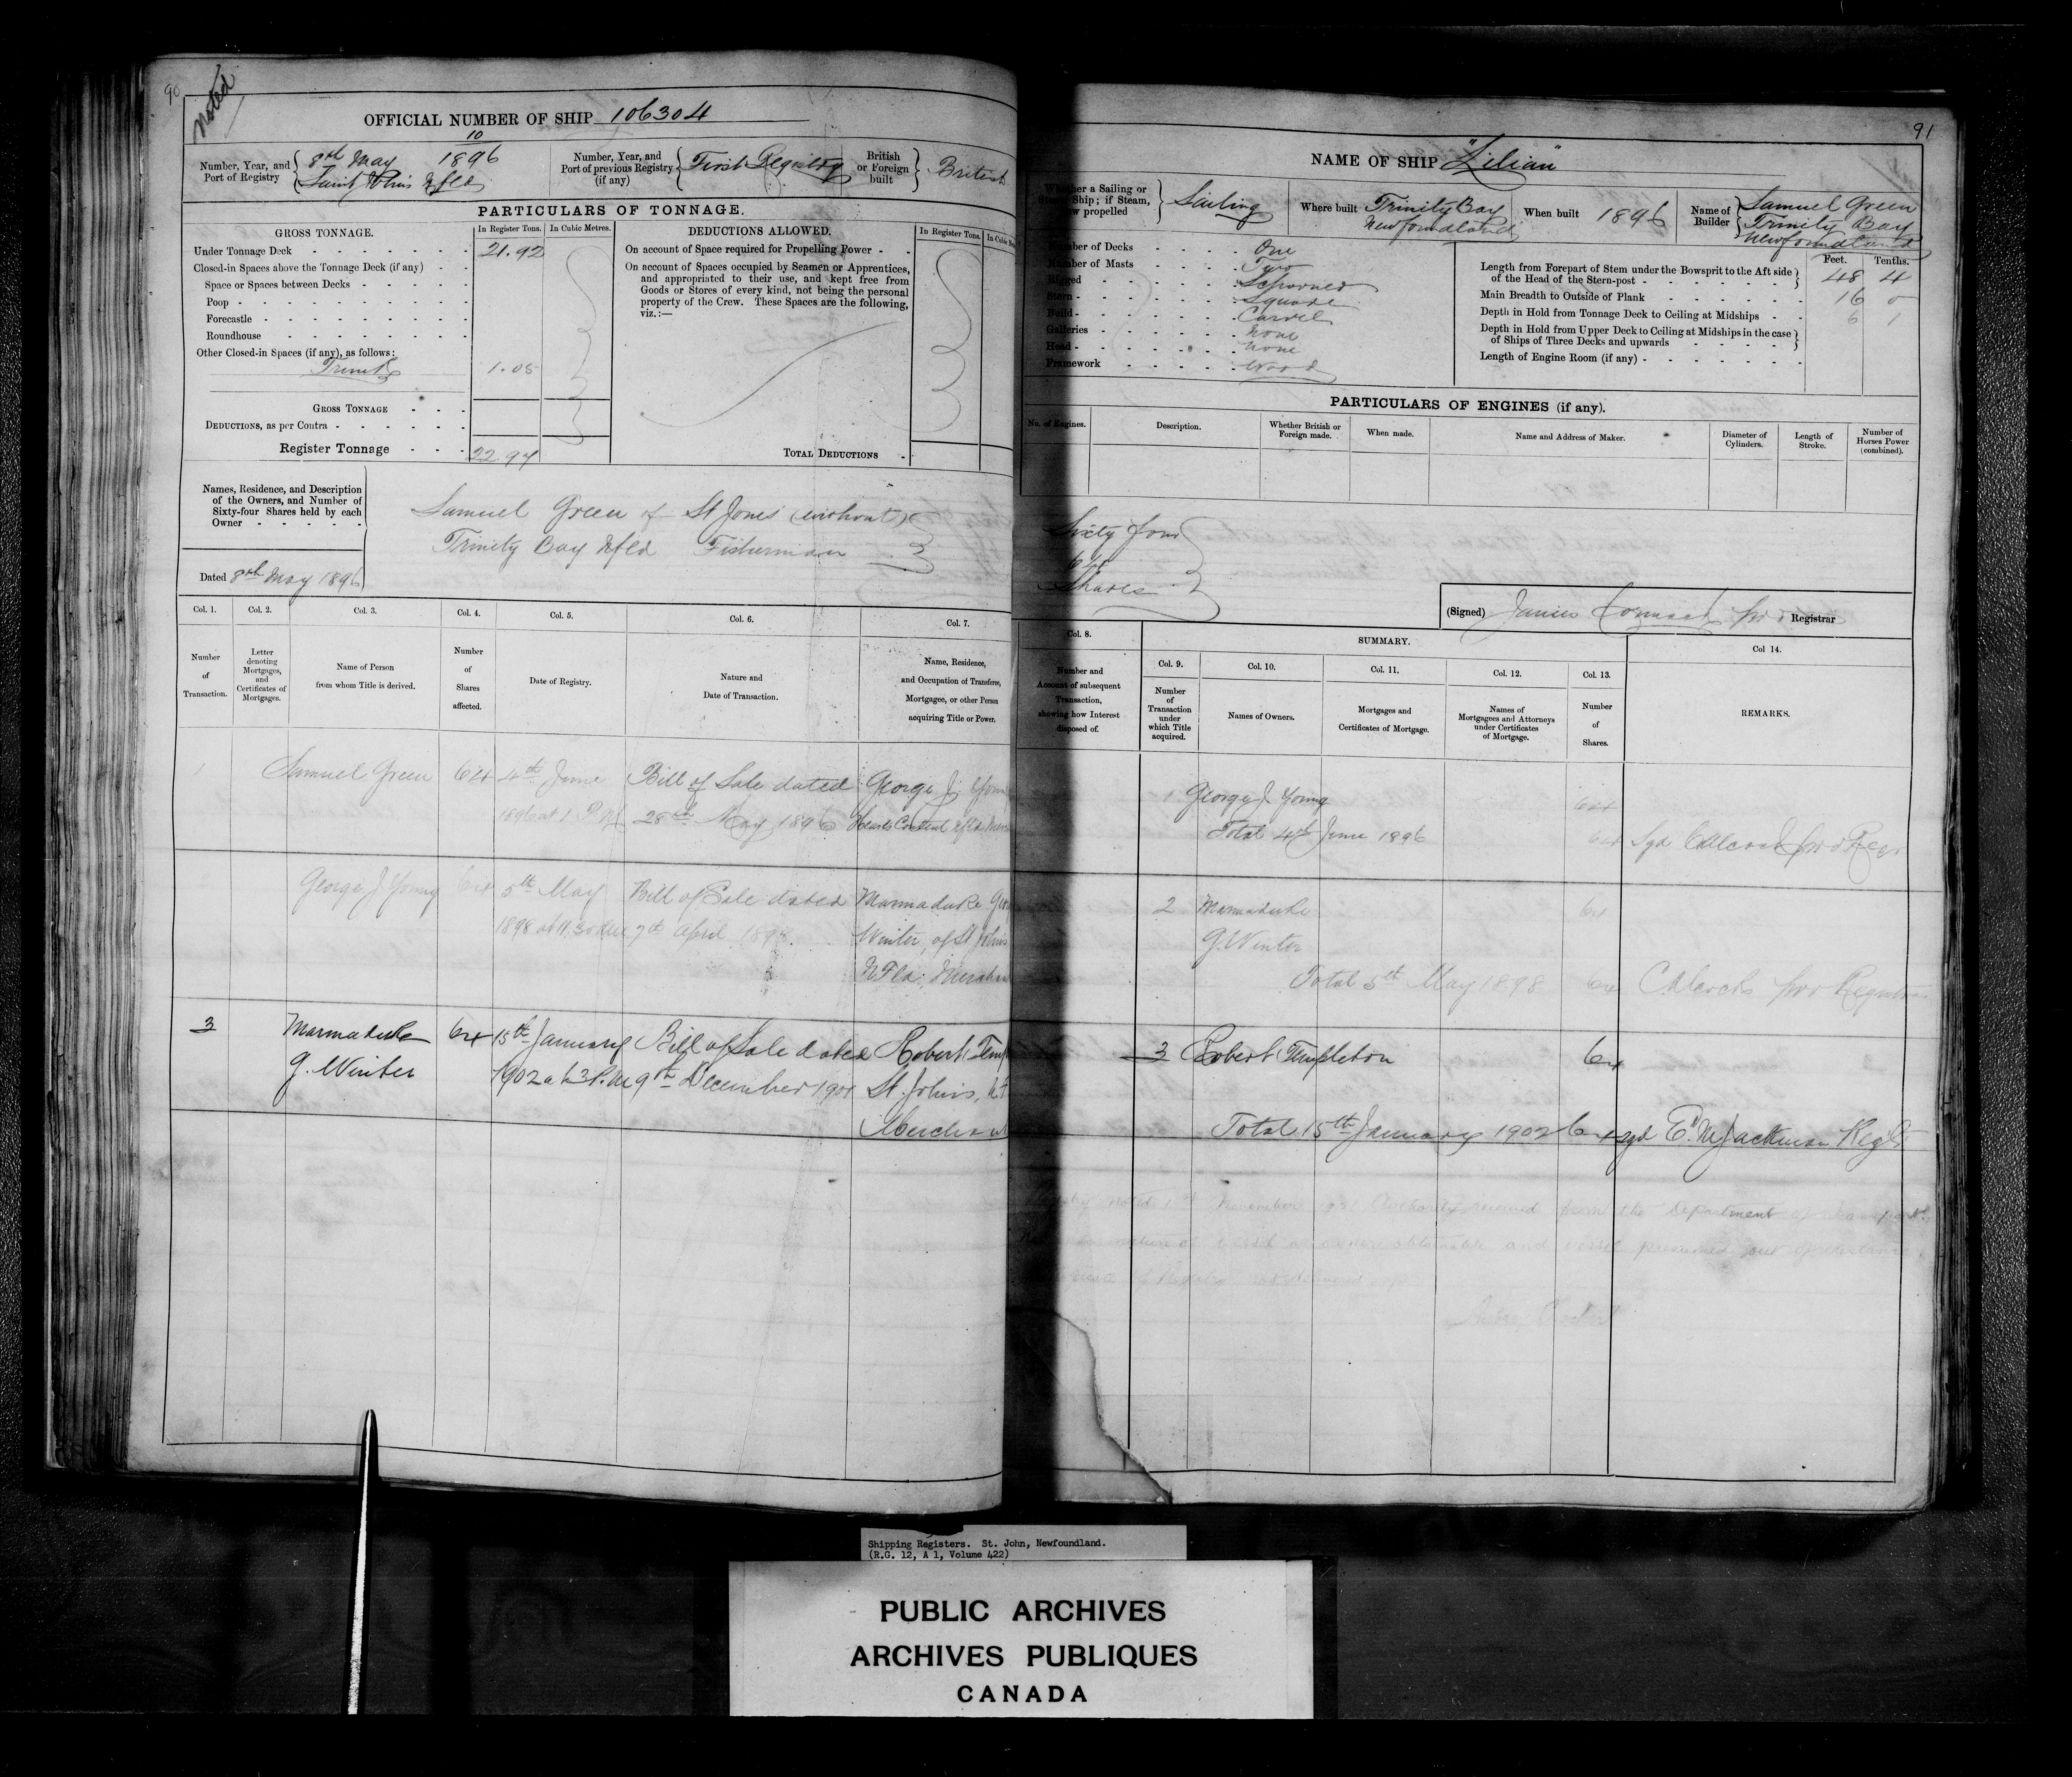 90
noted
OFFICIAL NUMBER OF SHIP 106304
Number, Year, and Port of Registry
10
8th May 1896
Saint John's Nfld
Number, Year, and Port of previous Registry (if any)
First Registry
British or Foreign built
British
PARTICULARS OF TONNAGE.
GROSS TONNAGE.
In Register Tons.
In Cubic Metres.
Under Tonnage Deck 21.92
Closed-in Spaces above the Tonnage Deck (if any)
Space or Spaces between Decks
Poop
Forecastle
Roundhouse
Other Closed-in Spaces (if any), as follows:
Trunk 1.05
GROSS TONNAGE
DEDUCTIONS, as per Contra
Register Tonnage 22.97
DEDUCTIONS ALLOWED.
In Register Tons.
On account of Space required for Propelling Power
On account of Spaces occupied by Seamen or Apprentices,
and appropriated to their use, and kept free from
Goods or Stores of every kind, not being the personal
property of the Crew. These Spaces are the following,
viz.:—
TOTAL DEDUCTIONS
Names, Residence, and Description
of the Owners, and Number of
Sixty-four Shares held by each
Owner
Samuel Green of St Jones (without)
Trinity Bay Nfld Fisherman
Dated 8th May 1896
Col. 1.
Number of Transaction.
Col. 2.
Letter denoting Mortgages, and Certificates of Mortgages.
Col. 3.
Name of Person from whom Title is derived.
Col. 4.
Number of Shares affected.
Col. 5.
Date of Registry.
Col. 6.
Nature and Date of Transaction.
Col. 7.
Name, Residence,
and Occupation of Transferee,
Mortgagee, or other Person
acquiring Title or Power.
1 Samuel Green 64 4th June Bill of Sale dated George J.
1896 at 1 P.M. 28th May 1896 Hearts Content Nfld
George J Young 64 5th May Bill of Sale dated Marmaduke
1898 at 11.30 7th April 1898. Winter, of St Johns
NFld,
3 Marmaduke 64 15th January Bill of Sale dated Robert
G. Winter 1902 at 3 P.M. 9th December 1901 St. John's,
Merchant
91
NAME OF SHIP "Lilian"
Whether a Sailing or Steam Ship; if Steam, how propelled
Sailing
Where built Trinity Bay
Newfoundland
When built 1896
Name of Builder
Samuel Green
Trinity Bay
Newfoundland
Number of Decks One
Number of Masts Two
Rigged Schooner
Stern Square
Build Carvel
Galleries None
Head None
Framework Wood
Feet. Tenths.
Length from Forepart of Stem under the Bowsprit to the Aft side
of the Head of the Stern-post 48 4
Main Breadth to Outside of Plank 16 0
Depth in Hold from Tonnage Deck to Ceiling at Midships 6 1
Depth in Hold from Upper Deck to Ceiling at Midships in the case
of Ships of Three Decks and upwards
Length of Engine Room (if any)
PARTICULARS OF ENGINES (if any).
No. of Engines.
Description.
Whether British or Foreign made.
When made.
Name and Address of Maker.
Diameter of Cylinders.
Length of Stroke.
Number of Horses Power (combined).
Sixty four
64
Shares
(Signed) James Registrar
Col. 8.
Number and
Account of subsequent
Transaction,
showing how Interest
disposed of.
SUMMARY.
Col. 9.
Number of Transaction under which Title acquired.
Col. 10.
Names of Owners.
Col. 11.
Mortgages and Certificates of Mortgage.
Col. 12.
Names of Mortgagees and Attorneys under Certificates of Mortgage.
Col. 13.
Number of Shares.
Col 14.
REMARKS.
1 George J. Young 64
Total 4th June 1896 64 Sgd
2 Marmaduke 64
G. Winter
Total 5th May 1898 64
3 Robert Templeton 64
Total 15th January 1902 64 sgd E. M. Jackman Regr
noted 1st November Authority received from the Department of Transport
of vessel and vessel presumed out of existence.
Shipping Registers. St. John, Newfoundland.
(R.G. 12, A 1, Volume 422)
PUBLIC ARCHIVES
ARCHIVES PUBLIQUES
CANADA